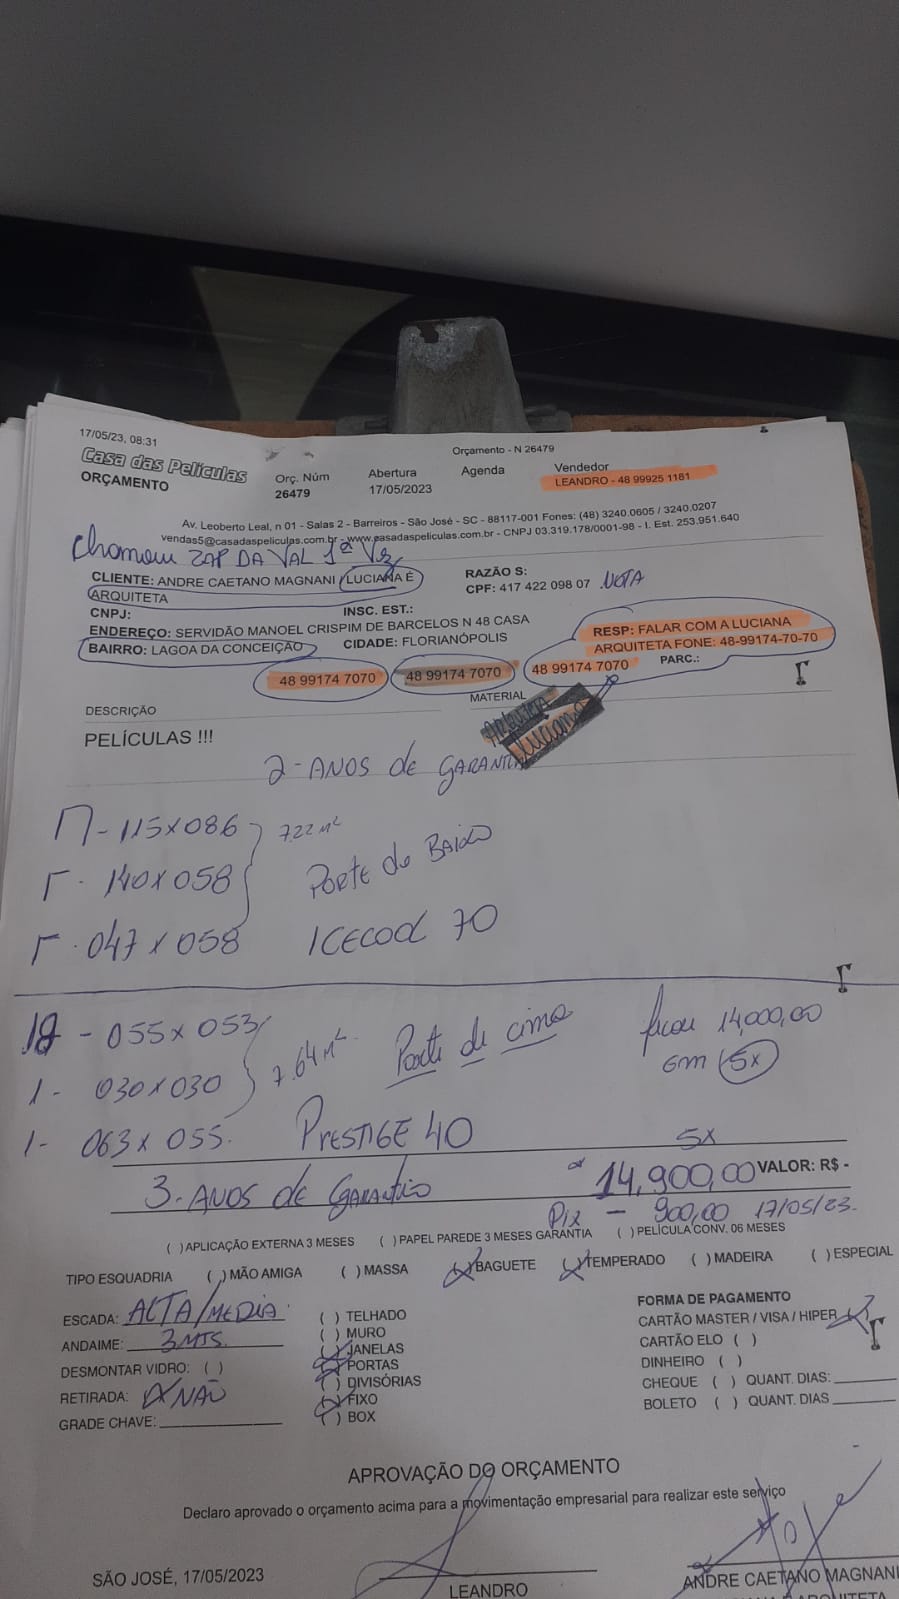 17/05/23, 08:31
Orçamento - N 26479
Casa das Películas
ORÇAMENTO
Orç. Núm
26479
Abertura
17/05/2023
Agenda
Vendedor
LEANDRO - 48 99925 1181
Av. Leoberto Leal, n 01 - Salas 2 - Barreiros - São José - SC - 88117-001 Fones: (48) 3240.0605 / 3240.0207
vendas5@casadaspeliculas.com.br - www.casadaspeliculas.com.br - CNPJ 03.319.178/0001-98 - I. Est. 253.951.640
ZAP DA VAL 1ª Vez
CLIENTE: ANDRE CAETANO MAGNANI / LUCIANA É
ARQUITETA
RAZÃO S:
CPF: 417 422 098 07 NOTA
CNPJ:
INSC. EST.:
ENDEREÇO: SERVIDÃO MANOEL CRISPIM DE BARCELOS N 48 CASA
BAIRRO: LAGOA DA CONCEIÇÃO
CIDADE: FLORIANÓPOLIS
RESP: FALAR COM A LUCIANA
ARQUITETA FONE: 48-99174-70-70
48 99174 7070
48 99174 7070
48 99174 7070
PARC.:
DESCRIÇÃO
MATERIAL
Arquiteta
Luciana
PELÍCULAS !!!
2-ANOS de GARANTIA
115x086
7.22 m²
140x058
PARTE de BAIXO
047x058
ICECOOL 70
055x053
7.64 m²
Parte de cima
ficou 14000,00
em 5x
1- 030x030
1- 063x055.
PRESTIGE 40
5x
14,900,00 VALOR: R$ -
3-ANOS de Garantia
Pix - 900,00 17/05/23.
( ) APLICAÇÃO EXTERNA 3 MESES ( ) PAPEL PAREDE 3 MESES GARANTIA ( ) PELÍCULA CONV. 06 MESES
TIPO ESQUADRIA ( ) MÃO AMIGA ( ) MASSA (X) BAGUETE (X) TEMPERADO ( ) MADEIRA ( ) ESPECIAL
ESCADA: ALTA/MEDIA
ANDAIME: 3 MTS.
DESMONTAR VIDRO: ( )
RETIRADA: (X) NÃO
GRADE CHAVE:
( ) TELHADO
( ) MURO
(X) JANELAS
(X) PORTAS
( ) DIVISÓRIAS
(X) FIXO
( ) BOX
FORMA DE PAGAMENTO
CARTÃO MASTER / VISA / HIPER (X)
CARTÃO ELO ( )
DINHEIRO ( )
CHEQUE ( ) QUANT. DIAS:
BOLETO ( ) QUANT. DIAS
APROVAÇÃO DO ORÇAMENTO
Declaro aprovado o orçamento acima para a movimentação empresarial para realizar este serviço
SÃO JOSÉ, 17/05/2023
LEANDRO
ANDRE CAETANO MAGNANI